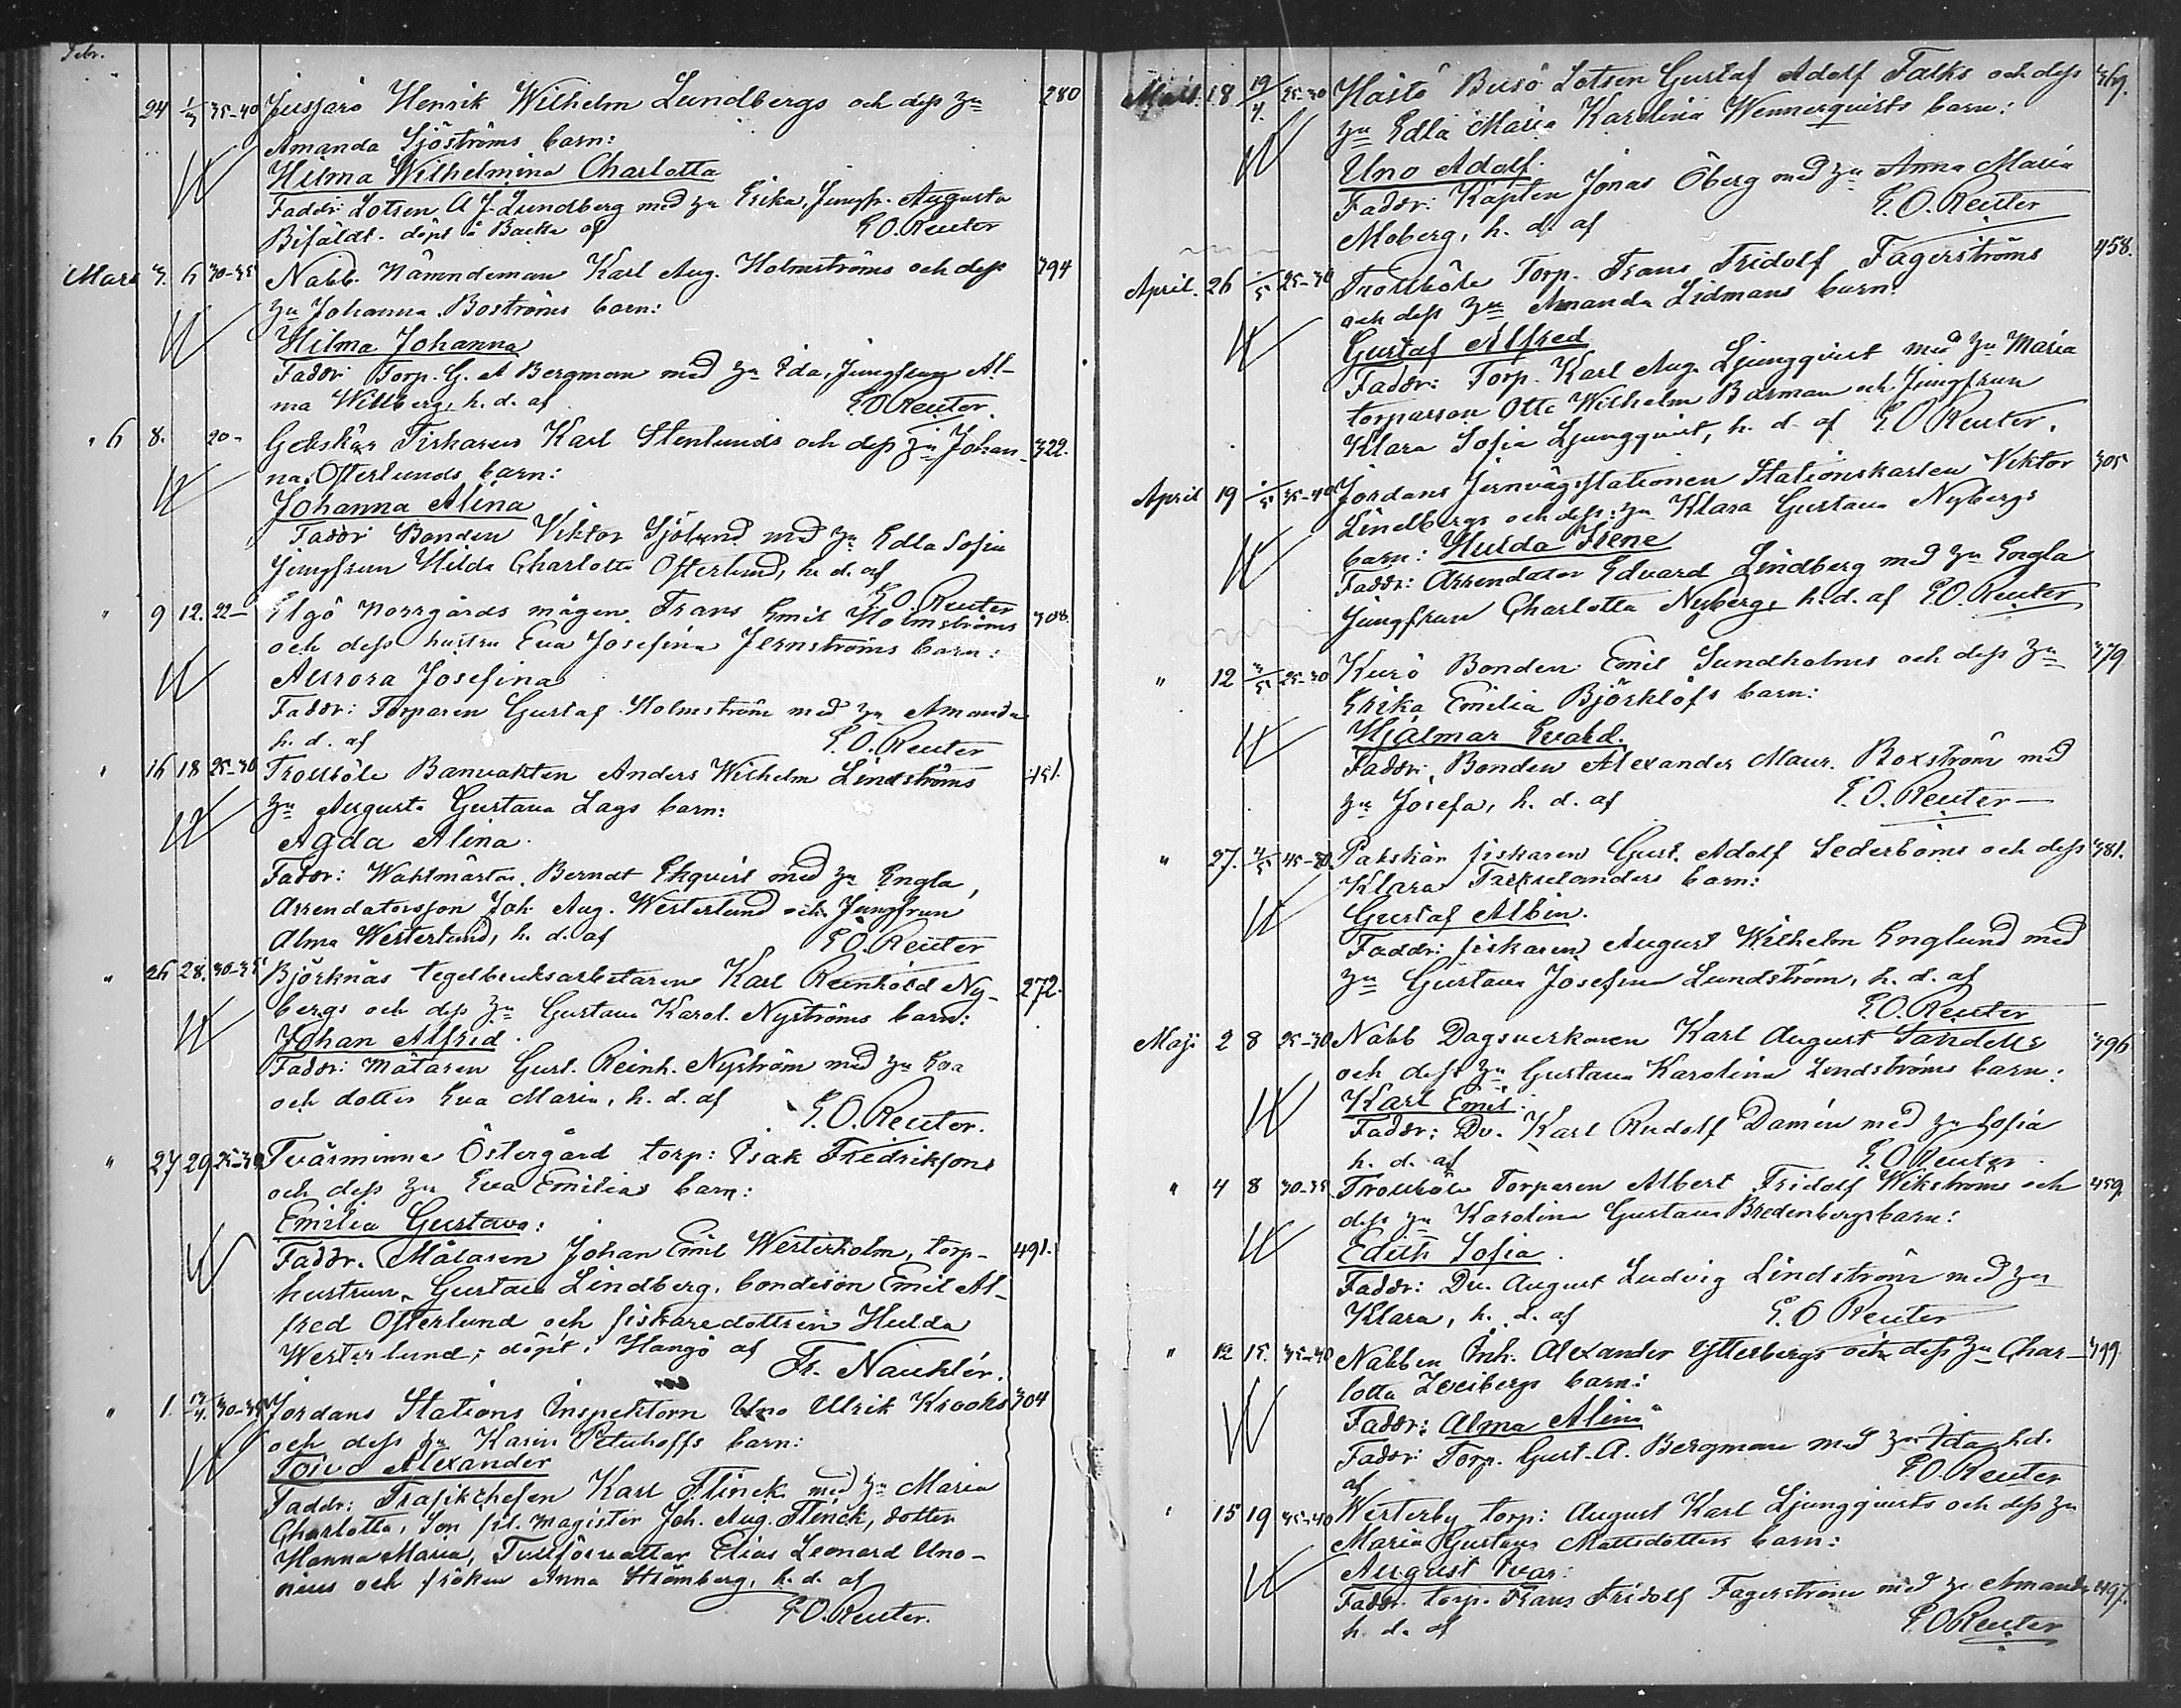 Febr.
24 1/3 35-40 Jussarö Henrik Wilhelm Lundbergs och dess hu 280
Amanda Sjöströms barn:
Hilma Wilhelmina Charlotta
Faddr: Lotsen A J. Lundberg med hu Erika, Jungfr. Augusta
Bifäldt. döpt i Backa af E O. Reuter
Mars 3. 6 30-35 Nabb. Nämndeman Karl Aug. Holmströms och dess 394
hu Johanna Boströms barn:
Hilma Johanna
Faddr: Torp. G. A Bergman med hu Ida, Jungfrun Al-
ma Willberg, h. d. af E O Reuter.
" 6 8. 20- Getskär Fiskaren Karl Stenlunds och dess hu Johan- 322.
na Österlunds barn:
Johanna Alina
Faddr Bonden Viktor Sjölund med hu Edla Sofia
Jungfrun Hilda Charlotta Österlund, h. d. af
E O. Reuter
" 9 12. 22- Elgö Norrgårds mågen. Frans Emil Holmströms 308.
och dess hustru Eva Josefina Jernströms barn:
Aurora Josefina
Faddr: Torparen Gustaf Holmström med hu Amanda
h. d. af E. O. Reuter
" 16 18 25-30 Trollböle Banvakten Anders Wilhelm Lindströms 451.
hu Augusta Gustava Lags barn:
Agda Alina.
Faddr: Waktmästar. Berndt Ekqvist med hu Engla,
Arrendatorsson Joh. Aug. Westerlund och Jungfrun
Alma Westerlund, h. d. af E O. Reuter
" 26 28. 30-35 Björknäs tegelbruksarbetaren Karl Reinhold Ny- 272.
bergs och dess hu Gustava Karol. Nyströms barn:
Johan Alfrid.
Faddr: Mätaren Gust. Reinh. Nyström med hu Eva
och dotter Eva Maria, h. d. af E. O. Reuter.
" 27 29 25-30 Tvärminne Östergård torp: Isak Fredriksons
och dess hu Eva Emilias barn:
Emilia Gustava:
Faddr. Målaren Johan Emil Westerholm, torp- 491.
hustrun Gustava Lindberg, bondeson Emil Al-
fred Österlund och fiskaredottren Hulda
Westerlund; döpt i Hangö af Fr. Nauklér.
" 1. 13/4. 30-35 Jordans Stations Inspektorn Uno Ulrik Krooks 304
och dess hu Karin Petuhoffs barn:
Toivo Alexander
Faddr: Trafikchefen Karl Flinck med hu Maria
Charlotta, Son fil. magister Joh. Aug. Flinck, dotter
Hanna Maria, Tullförvaltar Elias Leonard Uno-
nius och fröken Anna Strömberg, h. d. af
E O. Reuter.
Mars. 18 19/4. 25-30 Hästö Busö Lotsen Gustaf Adolf Falks och dess 369.
hu Edla Maria Karolina Wennerqvists barn:
Uno Adolf.
Faddr: Kapten Jonas Öberg med hu Anna Maria
Moberg, h. d. af E. O. Reuter
April. 26 /5 25-30 Trollböle Torp. Frans Fridolf Fagerströms 458.
och dess hu Amanda Lidmans barn:
Gustaf Alfred
Faddr: Torp. Karl Aug. Ljungqvist med hu Maria
torparson Otto Wilhelm Barman och Jungfrun
Klara Sofia Ljungqvist, h. d. af E O Reuter.
April 19 /5 35-40 Jordans Jernvägsstationen Stationskarlen Viktor 305
Lindbergs och dess hu Klara Gustava Nybergs
barn: Hulda Irene
Faddr: Arrendator Edvard Lindberg med hu Engla
Jungfrun Charlotta Nyberg, h. d. af E O. Reuter
" 12 3/5 25-30 Kurö Bonden Emil Sundholms och dess hu 379
Erika Emilia Björklöfs barn:
Hjalmar Evald.
Faddr: Bonden Alexander Maur. Boxström med
hu Josefa, h. d. af E. O. Reuter
" 27. 4/5 45-50 Pakskär fiskaren Gust. Adolf Sederboms och dess 381.
Klara barn:
Gustaf Albin.
Faddr: fiskaren August Wilhelm Englund med
hu Gustava Josefina Lundström, h. d. af
E. O. Reuter
Maji 2 8 25-30 Nabb Dagsverkaren Karl August Sandells 396
och dess hu Gustava Karolina Lindströms barn:
Karl Emil.
Faddr: Dv. Karl Rudolf Damén med hu Sofia
h. d. af E. O Reuter.
" 4 8 30-35 Trollböle Torparen Albert Fridolf Wikströms och 459.
dess hu Karolina Gustava Bredenbergs barn:
Edith Sofia.
Faddr: Dv. August Ludvig Lindström med hu
Klara, h. d. af E. O Reuter
" 12 15. 35-40 Nabben Inh. Alexander Ytterbergs och dess hu Char- 399.
lotta barn:
Faddr: Alma Alina
Faddr: Torp. Gust. A. Bergman med hu Ida h.d.
af E O. Reuter
" 15 19 35-40 Westerby torp: August Karl Ljungqvists och dess hu
Maria Gustava Mattsdotters barn:
August Ivar:
Faddr. torp. Frans Fridolf Fagerström med hu Amanda 497.
h. d. af E O Reuter